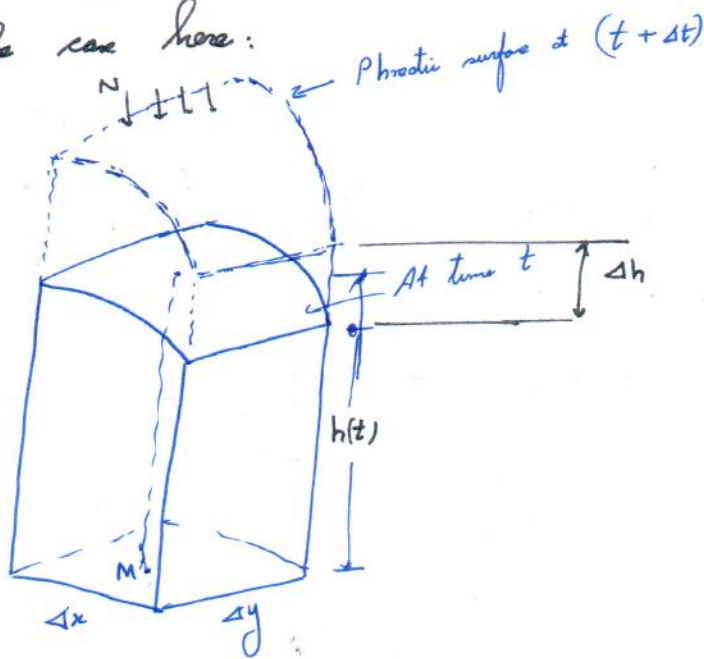 case here:
Phreatic surface at (t + Δt)
N
At time t
Δh
h(t)
M
Δx
Δy